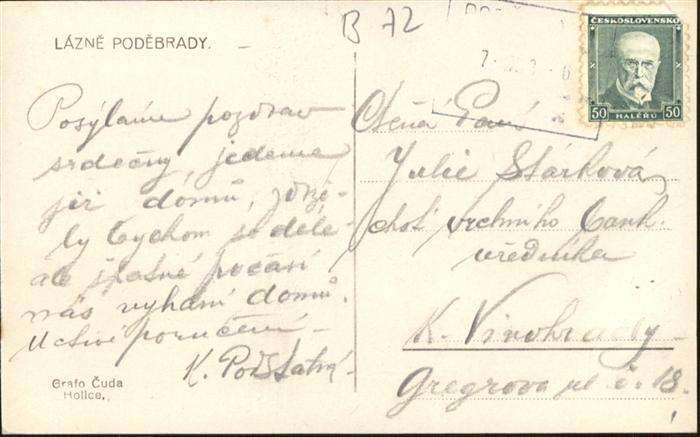 LÁZNĚ PODĚBRADY.
B 72
ČESKOSLOVENSKO
50 HALÉŘŮ 50
Posýláme pozdrav
srdečný, jedeme
již domů,
ly bychom se déle
ale špatné počasí
nás vyhání domů.
Uctivé poručení –
K. Podstatná
Grafo Čuda
Holice.
Ctěná Paní
Julie Stárková
choť vrchního bank.
úředníka
K. Vinohrady
Gregrova ul č. 18.